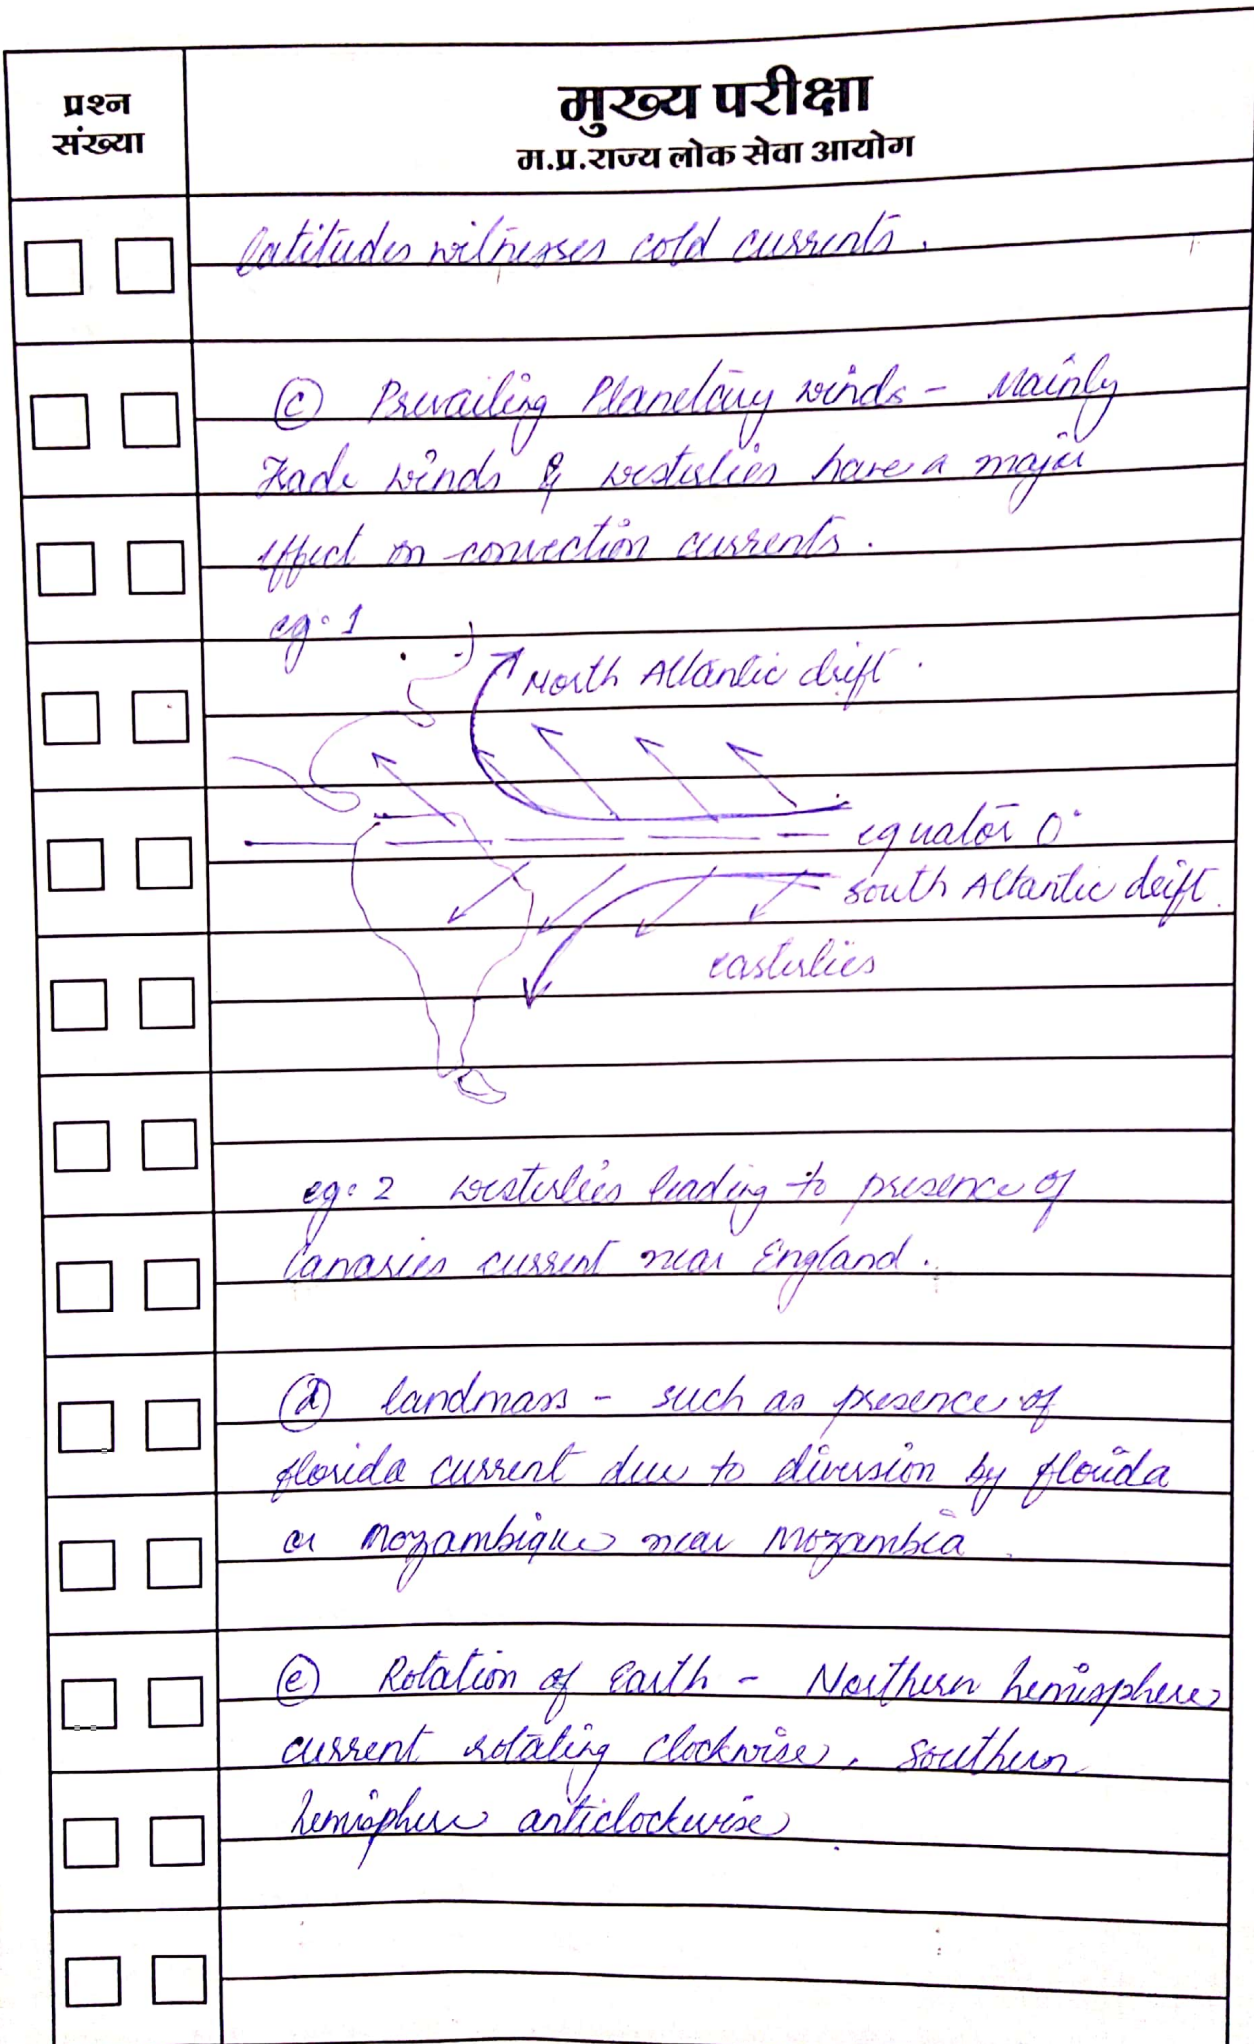 प्रश्न
संख्या
मुख्य परीक्षा
म.प्र.राज्य लोक सेवा आयोग
latitudes witnesses cold currents.
(c) Prevailing Planetary winds - Mainly
Trade winds & westerlies have a major
effect on convection currents.
eg: 1
North Atlantic drift.
equator 0°
South Atlantic drift.
easterlies
eg: 2 westerlies leading to presence of
Canaries current near England.
(d) landmass - such as presence of
florida current due to diversion by florida
or Mozambique near Mozambia.
(e) Rotation of Earth - Northern hemisphere
current rotating clockwise, southern
hemisphere anticlockwise